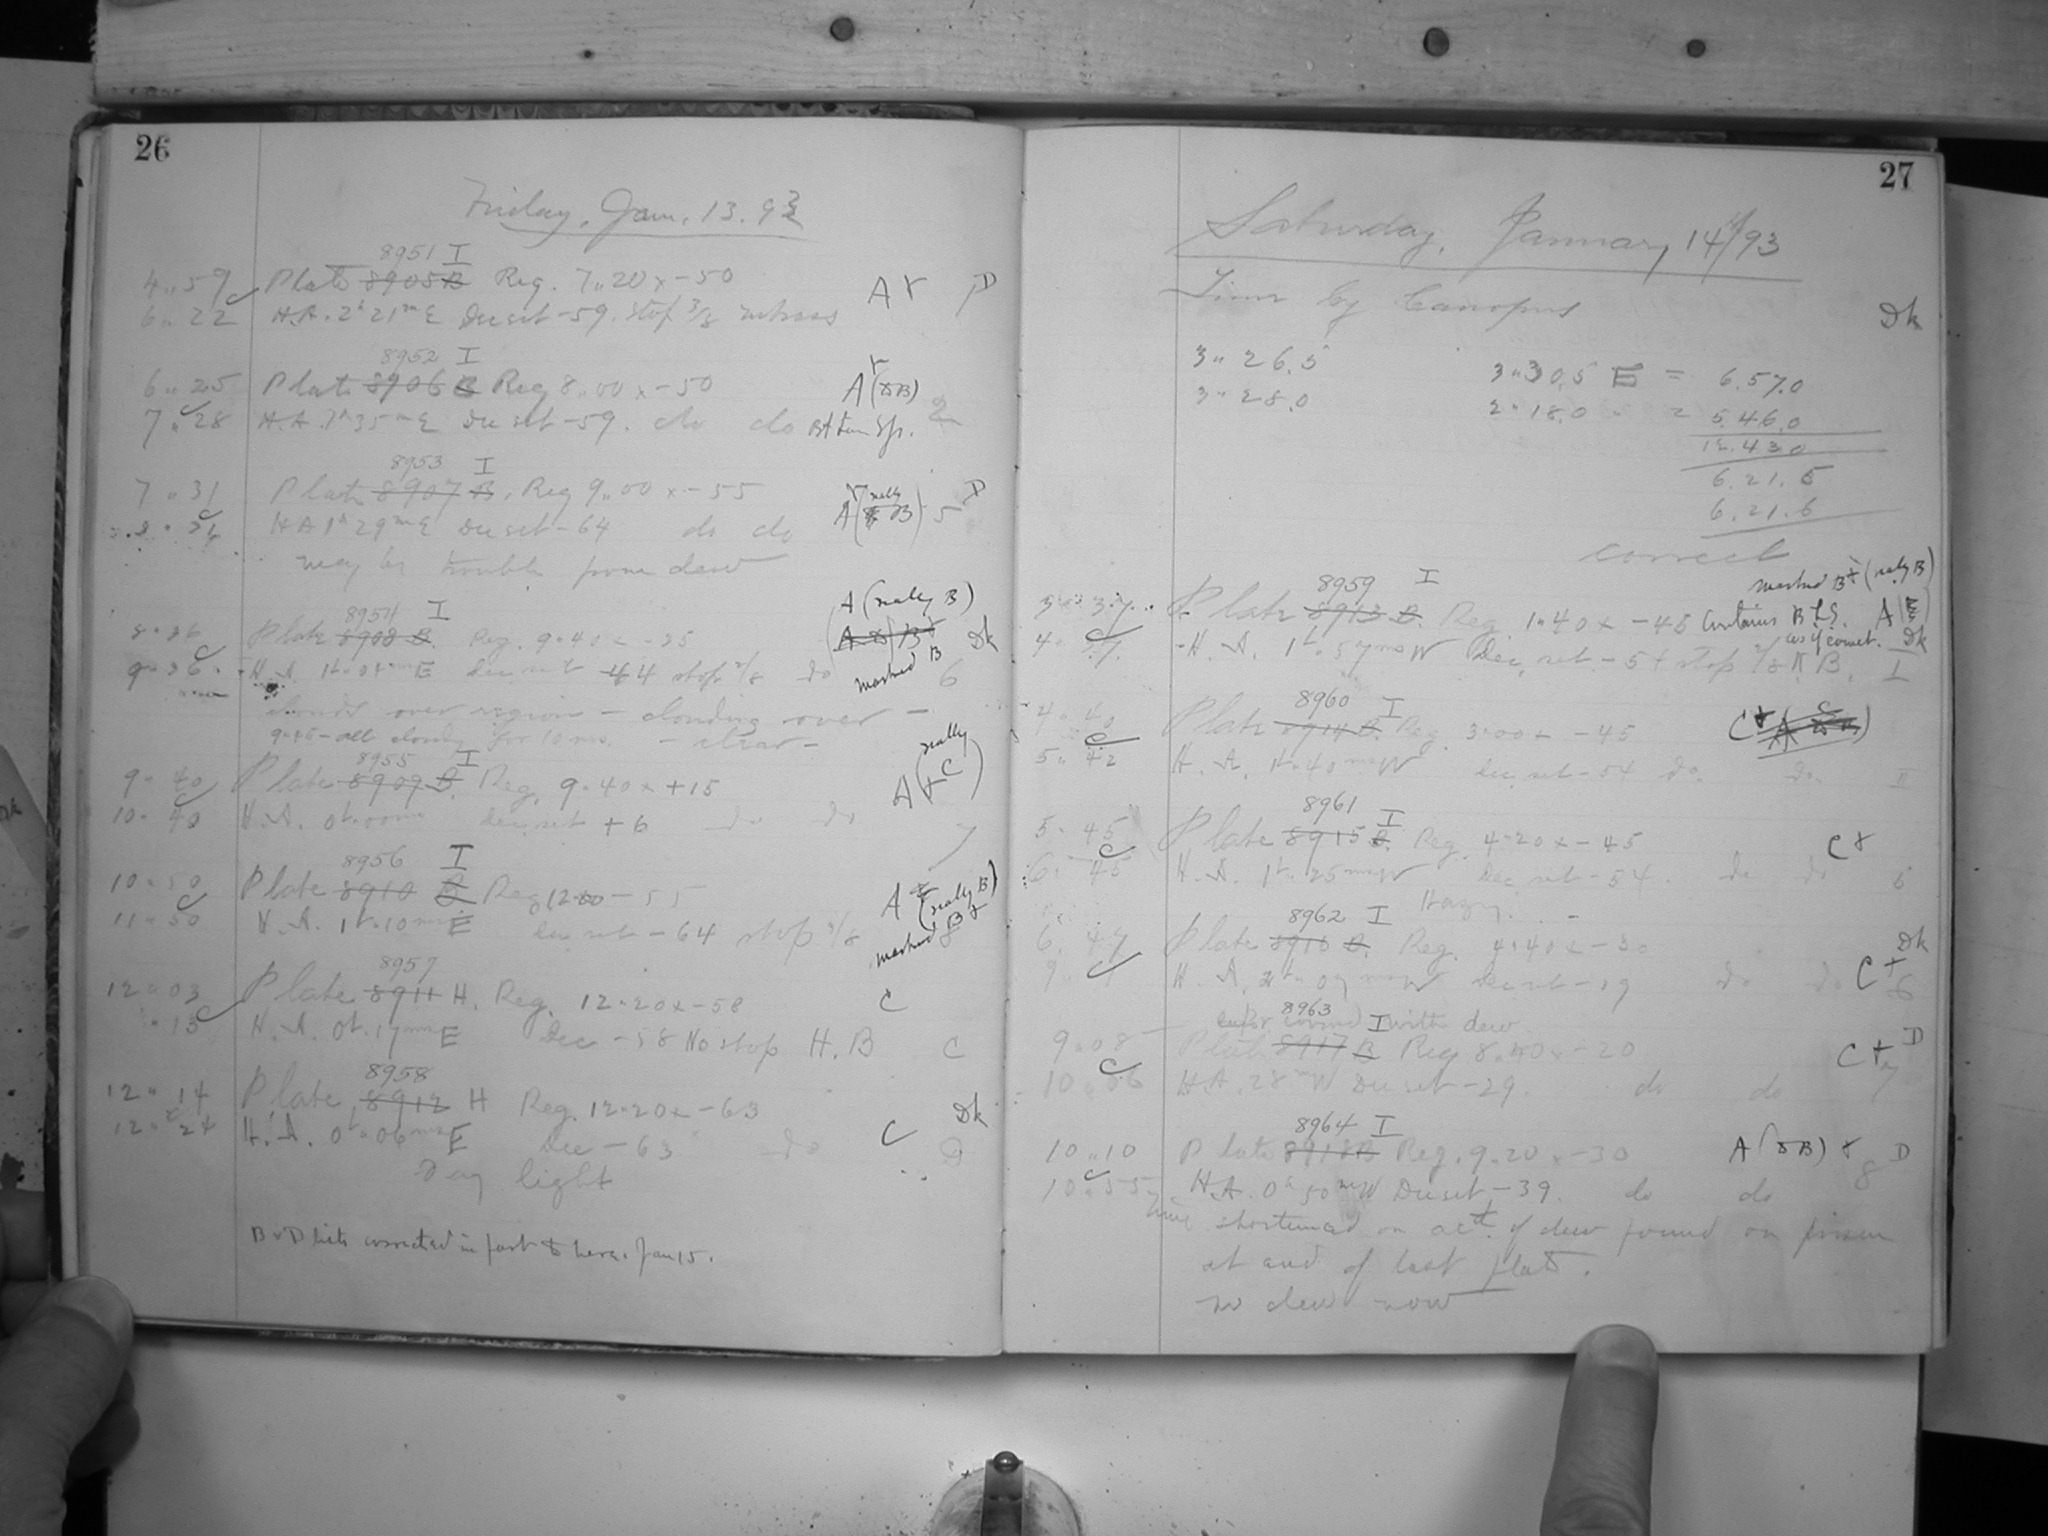 26
Friday, Jan. 13. 93
8951 I
4 " 59 Plate 8905 B Reg. 7 " 20 x -50 A r D
6 " 22 H.A. 2h 21m E Dec set -59. Stop 3/8
8952 I
6 " 25 Plate 8906 B Reg 8 " 00 x -50 A (& B)
7 " 28 H.A. 1h 35m E Dec set -59. do do
8953 I
7 " 31 Plate 8907 B. Reg 9 " 00 x -55 A (really B) 5 D
H A 1h 29m E Dec set -64 do do
may be trouble from dew
8954 I A (really B)
8 " 36 Plate 8908 B. Reg. 9 " 40 x -35 Dk
9 " 36 H. A. E Dec. set 44 stop do marked B 6
clouds over region - clouding over -
9 " 46 - all cloudy for 10 ms. - clear -
8955 I
9 " 40 Plate 8909 B. Reg. 9 " 40 x +15 A (really C)
10 " 40 H. A. 0h " 00ms dec. set + 6 do do 7
8956 I
10 " 50 Plate 8910 B Reg 12 " 00 - 55 A (really B)
11 " 50 H. A. 1h " 10ms E dec set - 64 stop 3/8 marked B 8
8957
12 " 03 Plate 8911 H. Reg. 12 " 20 x -58 C
" 13 H. A. 0h. 17ms E Dec -58 No stop H. B C
8958
12 " 14 Plate 8912 H Reg. 12 " 20 x -63 Dk
12 " 24 H. A. 0h " 06ms E Dec -63 do C
Day light
B & D lists corrected in part to here. Jan 15.
27
Saturday, January 14/93
Time by Canopus Dk
3 " 26.5 3 " 30.5 E = 6.57.0
3 " 28.0 2 " 18.0 = 5.46.0
12.43.0
6.21.5
6.21.6
correct
8959 I marked B+ (really B)
3 " 37 Plate 8913 B. Reg 1 " 40 x -45 Contains B L S. A
4 " 37 H. A. 1h " 57ms W Dec. set -54 stop 3/8 H B. Dk I
8960 I
4 " 40 Plate 8914 B. Reg. 3 " 00 x -45 C+
5 " 42 H. A. 1h " 40ms W dec set -54 do do II
8961 I
5 " 45 Plate 8915 B. Reg. 4 " 20 x -45 C+
6 " 45 H. A. 1h " 25ms W Dec set -54. do do 5
Hazy.
8962 I
6 " 47 Plate 8916 B. Reg. 4 " 40 x -30 Dk
H. A. 07ms W dec set - do do C+ 6
covered with dew
8963 I
9 " 08 Plate 8917 B Reg 8 " 40 x -20 C+ D
10 " 06 H A. 28m W Dec set -29. do do 7
8964 I
10 " 10 Plate 8918 B Reg. 9 " 20 x -30 A (& B) 8 D
10 " 55 H.A. 0h 50m W Dec set -39. do do
time shortened on act. of dew found on prism
at end of last plate.
no dew now